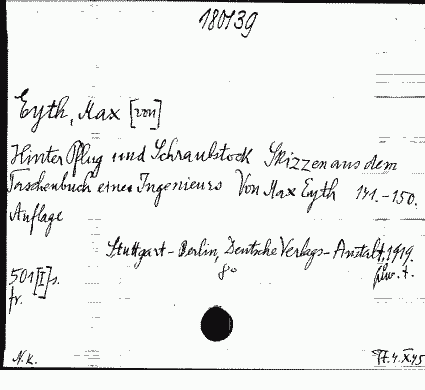 180139
Eyth, Max [von]
Hinter Pflug und Schraubstock Skizzen aus dem
Taschenbuch eines Ingenieurs Von Max Eyth 141.-150.
Auflage
Stuttgart-Berlin, Deutsche Verlags-Anstalt, 1919.
8°
501 [I] s.
fr.
N.K.